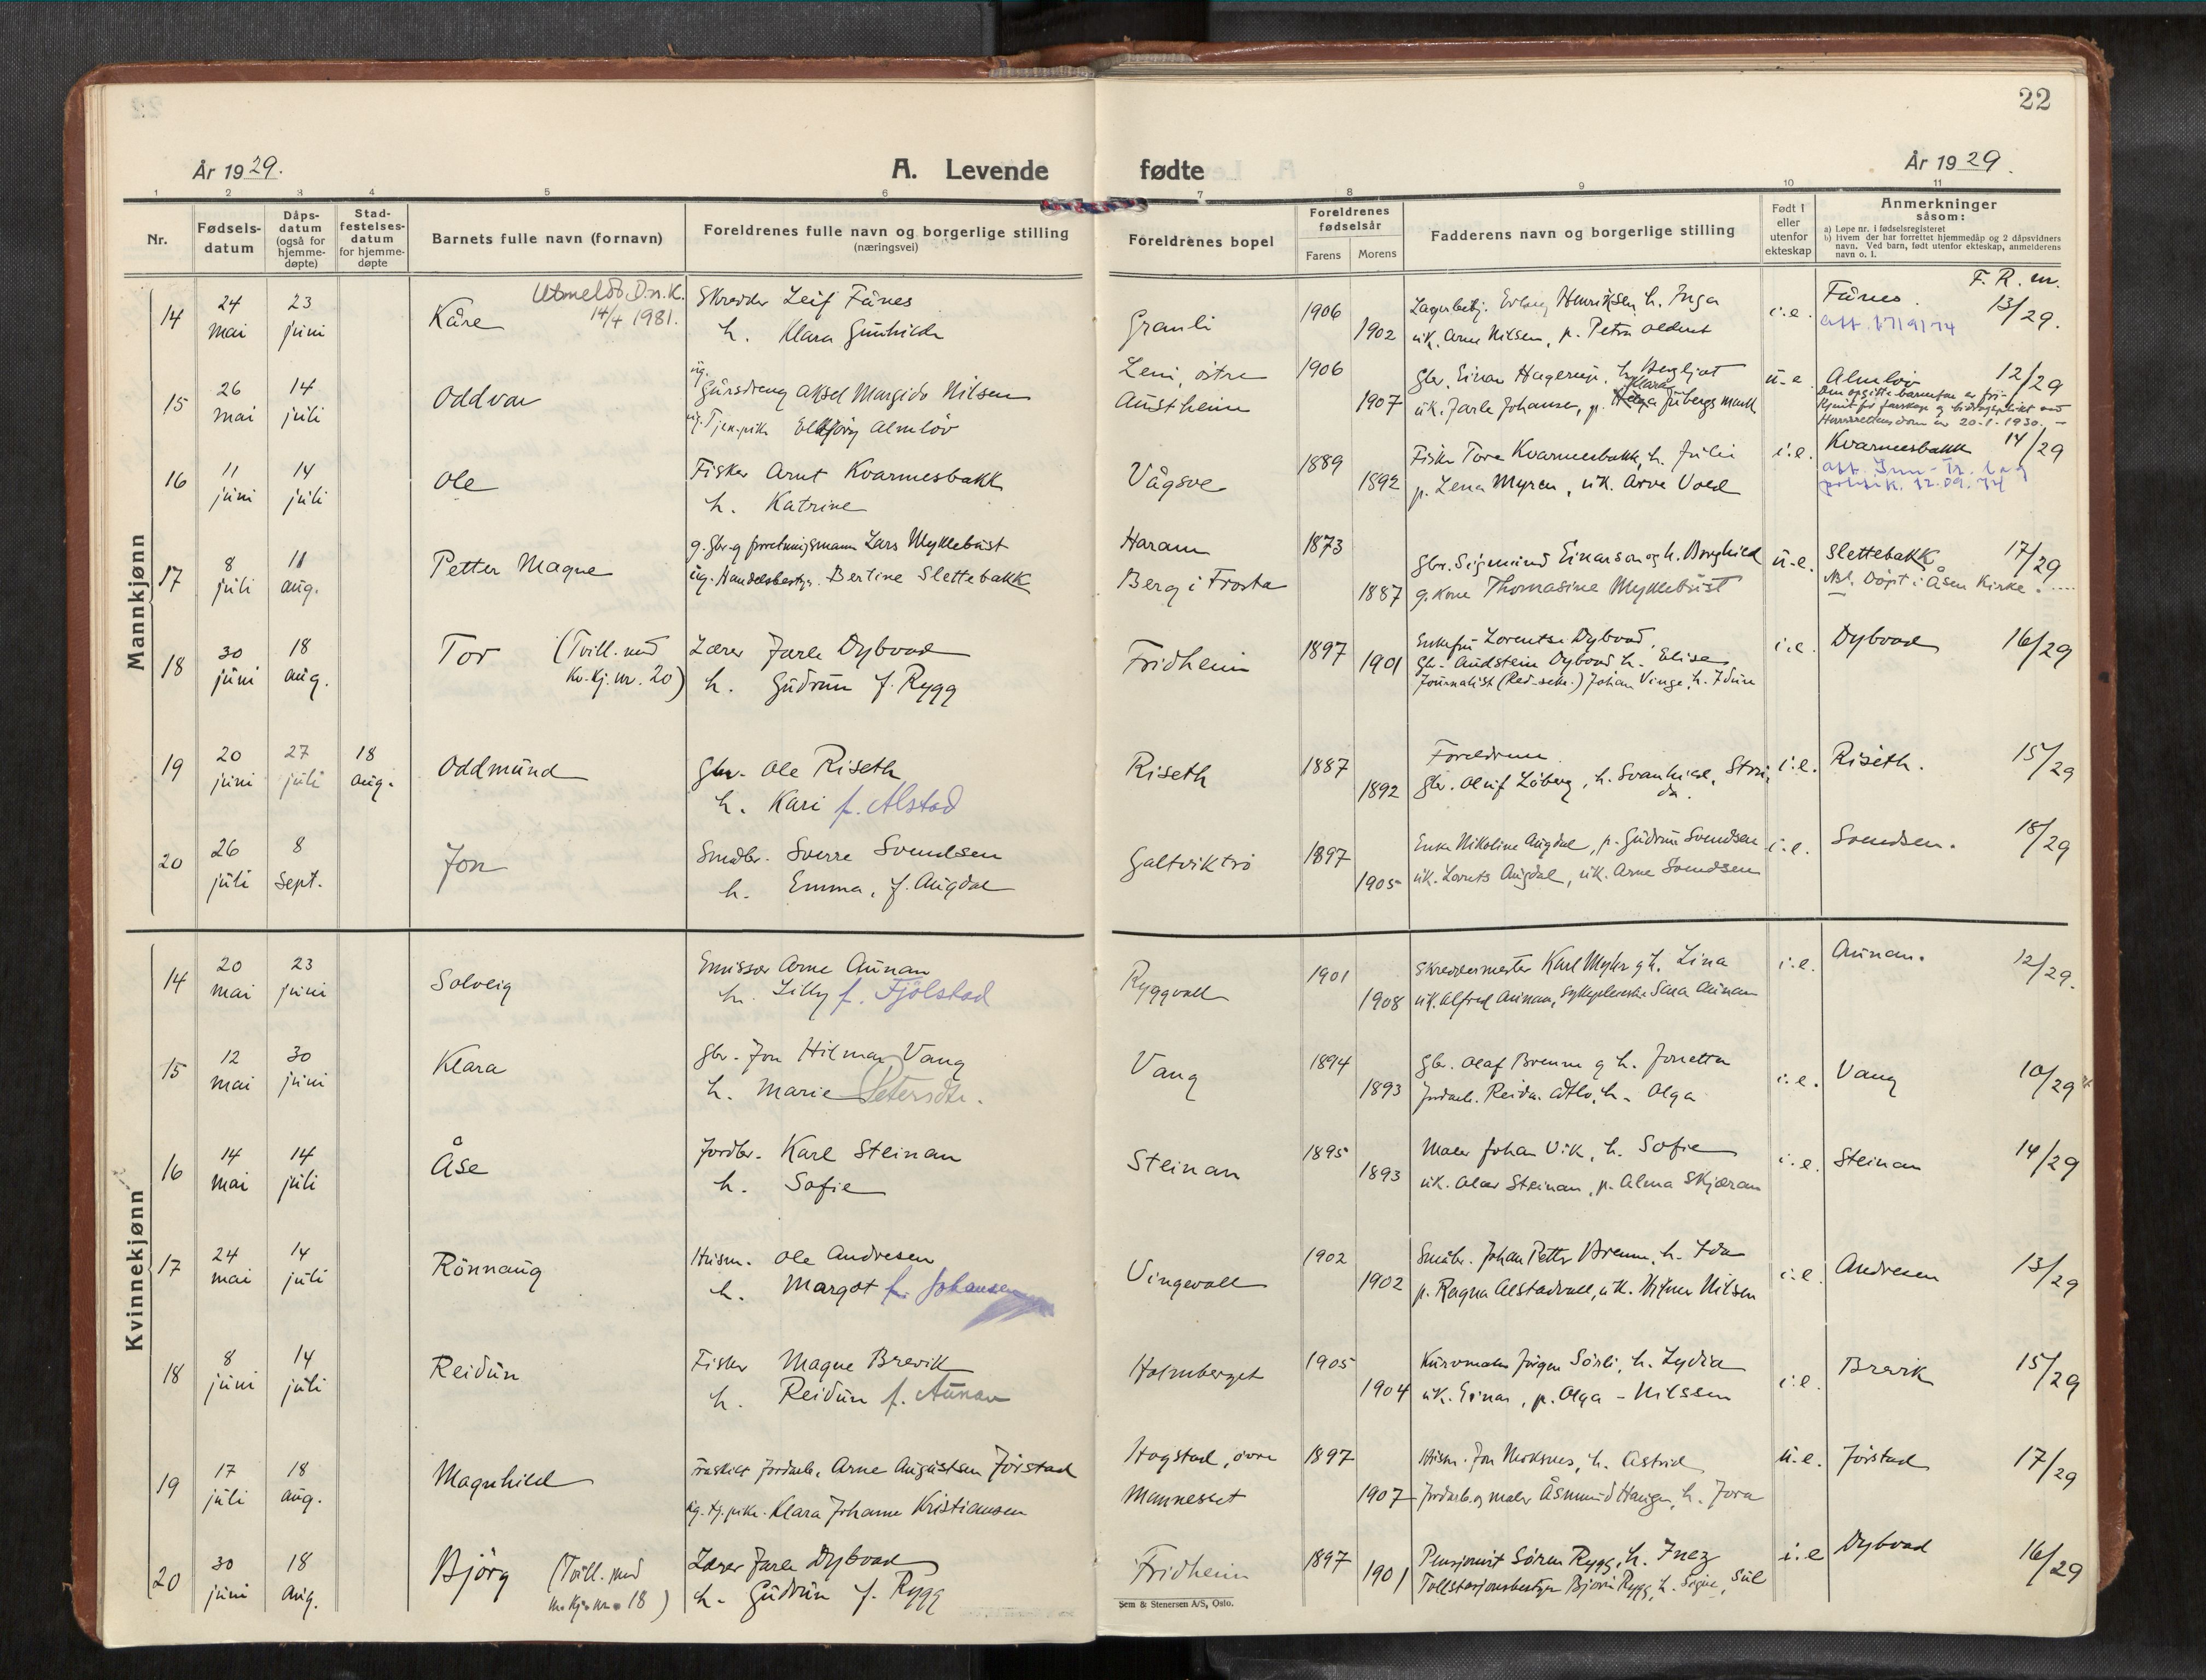 22
År 1929.
A. Levende fødte
År 1929.
1 2 3 4 5 6 7 8 9 10 11
Nr.
Fødsels-datum
Dåps-datum (også for hjemme-døpte)
Stad-festelses-datum for hjemme-døpte
Barnets fulle navn (fornavn)
Foreldrenes fulle navn og borgerlige stilling (næringsvei)
Foreldrenes bopel
Foreldrenes fødselsår
Farens Morens
Fadderens navn og borgerlige stilling
Født i eller utenfor ekteskap
Anmerkninger såsom:
a) Løpe nr. i fødselsregisteret
b) Hvem der har forrettet hjemmedåp og 2 dåpsvidners navn. Ved barn, født utenfor ekteskap, anmelderens navn o. l.
F. R. nr.
Mannkjønn
14 24 mai 23 juni Kåre Utmeldt D.n.K. 14/4 1981.
Skredder Leif Fånes
h. Klara Gunhilde
Granli 1906 1902
Lagerarb. Erling Henriksen, h. Inga
uk. Arne Nilsen, p. Petra
i.e. Fånes. 13/29.
15 26 mai 14 juli Oddvar
ug. Gårsdreng Aksel Margido Nilsen
ug. Tjen.pike Ellbjørg Almlöv
Leni, östre
Austheim 1906 1907
Gbr. Einar Hagerup, h. Bergljot
uk. Jarle Johansen, p. Klara
u.e. Almlöv 12/29
Den opgitte barnefar er fri-
kjent for farskap og bidragsplikt ved
Herredsrettens dom av 20-1-1930.
16 11 juni 14 juli Ole
Fisker Arnt Kvarmesbakk
h. Katrine
Vågsøe 1889 1892
Fisker Tore Kvarmesbakk, h. Julie
p. Lena Myren, uk. Arve Vold
i.e. Kvarmesbakk 14/29
17 8 juli 11 aug. Petter Magne
g. Gbr. og forretningsmann Lars Myklebust
ug. Handelsbestyr. Bertine Slettebakk
Haram
Berg i Frosta 1873 1887
Gbr. Sigmund Einarson og h. Borghild
g. kone Thomasine Myklebust
u.e. Slettebakk 17/29
Döpt i Åsen Kirke.
18 30 juni 18 aug. Tor (Tvill. med Kv.kj. nr. 20)
Lærer Jarle Dybvad
h. Gudrun f. Rygg
Fridheim 1897 1901
Enkefru Lorentse Dybvad,
Gbr. Audstein Dybvad h. Elise
Journalist (Red-sekr.) Johan Vinge, h. Idun
i.e. Dybvad 16/29
19 20 juni 27 juli 18 aug. Oddmund
Gbr. Ole Riseth
h. Kari f. Alstad
Riseth 1887 1892
Foreldrene
Gbr. Oluf Löberg, h. Svanhild,
i.e. Riseth. 15/29
20 26 juli 8 sept. Jon
Småbr. Sverre Svendsen
h. Emma, f. Augdal
Galtviktrö 1897 1905
Enke Nikoline Augdal, p. Gudrun Svendsen
uk. Lorents Augdal, uk. Arne Svendsen
i.e. Svendsen. 18/29
Kvinnekjønn
14 20 mai 23 juni Solveig
Emissær Arne Aunan
h. Lilly f. Fjölstad
Ryggvoll 1901 1908
Skreddermester Karl Myhr og h. Lina
uk. Alfred Aunan, Sykepleierske Sara Aunan
i.e. Aunan. 12/29.
15 12 mai 30 juni Klara
Gbr. Jon Hilmar Vang
h. Marie Petersdtr.
Vang 1894 1893
Gbr. Olaf Brenne og h. Jonetta
Jordarb. Reidar h. Olga
i.e. Vang 10/29
16 14 mai 14 juli Åse
Jordbr. Karl Steinan
h. Sofie
Steinan 1895 1893
Maler Johan Vik, h. Sofie
uk. Olav Steinan, p. Alma Skjæran
i.e. Steinan 14/29
17 24 mai 14 juli Rönnaug
Husm. Ole Andresen
h. Margot f. Johansen
Vingevoll 1902 1902
Småbr. Johan Petter Brenne, h. Ida
p. Ragna Alstadvoll, uk. Nilsen
i.e. Andresen 13/29
18 8 juni 14 juli Reidun
Fisker Magne Brevik
h. Reidun f. Aunan
Holmberget 1905 1904
Kurvmaker Jörgen Sörli, h. Lydia
uk. Einar, p. Olga - Nilssen
i.e. Brevik 15/29
19 17 juli 18 aug. Magnhild
fraskilt Jordarb. Arne Augustsen Jörstad
ug. tj.pike. Klara Johanne Kristiansen
Hogstad, övre
Mannesset 1897 1907
Husm. Jon Moksnes, h. Astrid
Jordarb. og maler Åsmund Haugen, h. Jora
u.e. Jörstad 17/29
20 30 juni 18 aug. Björg (Tvill. med m.kj. nr. 18)
Lærer Jarle Dybvad
h. Gudrun f. Rygg
Fridheim 1897 1901
Pensjonist Sören Rygg, h. Inez
Tollstasjonsbestyrer Björn Rygg, h. Signe,
i.e. Dybvad 16/29
Sem & Stenersen A/S, Oslo.